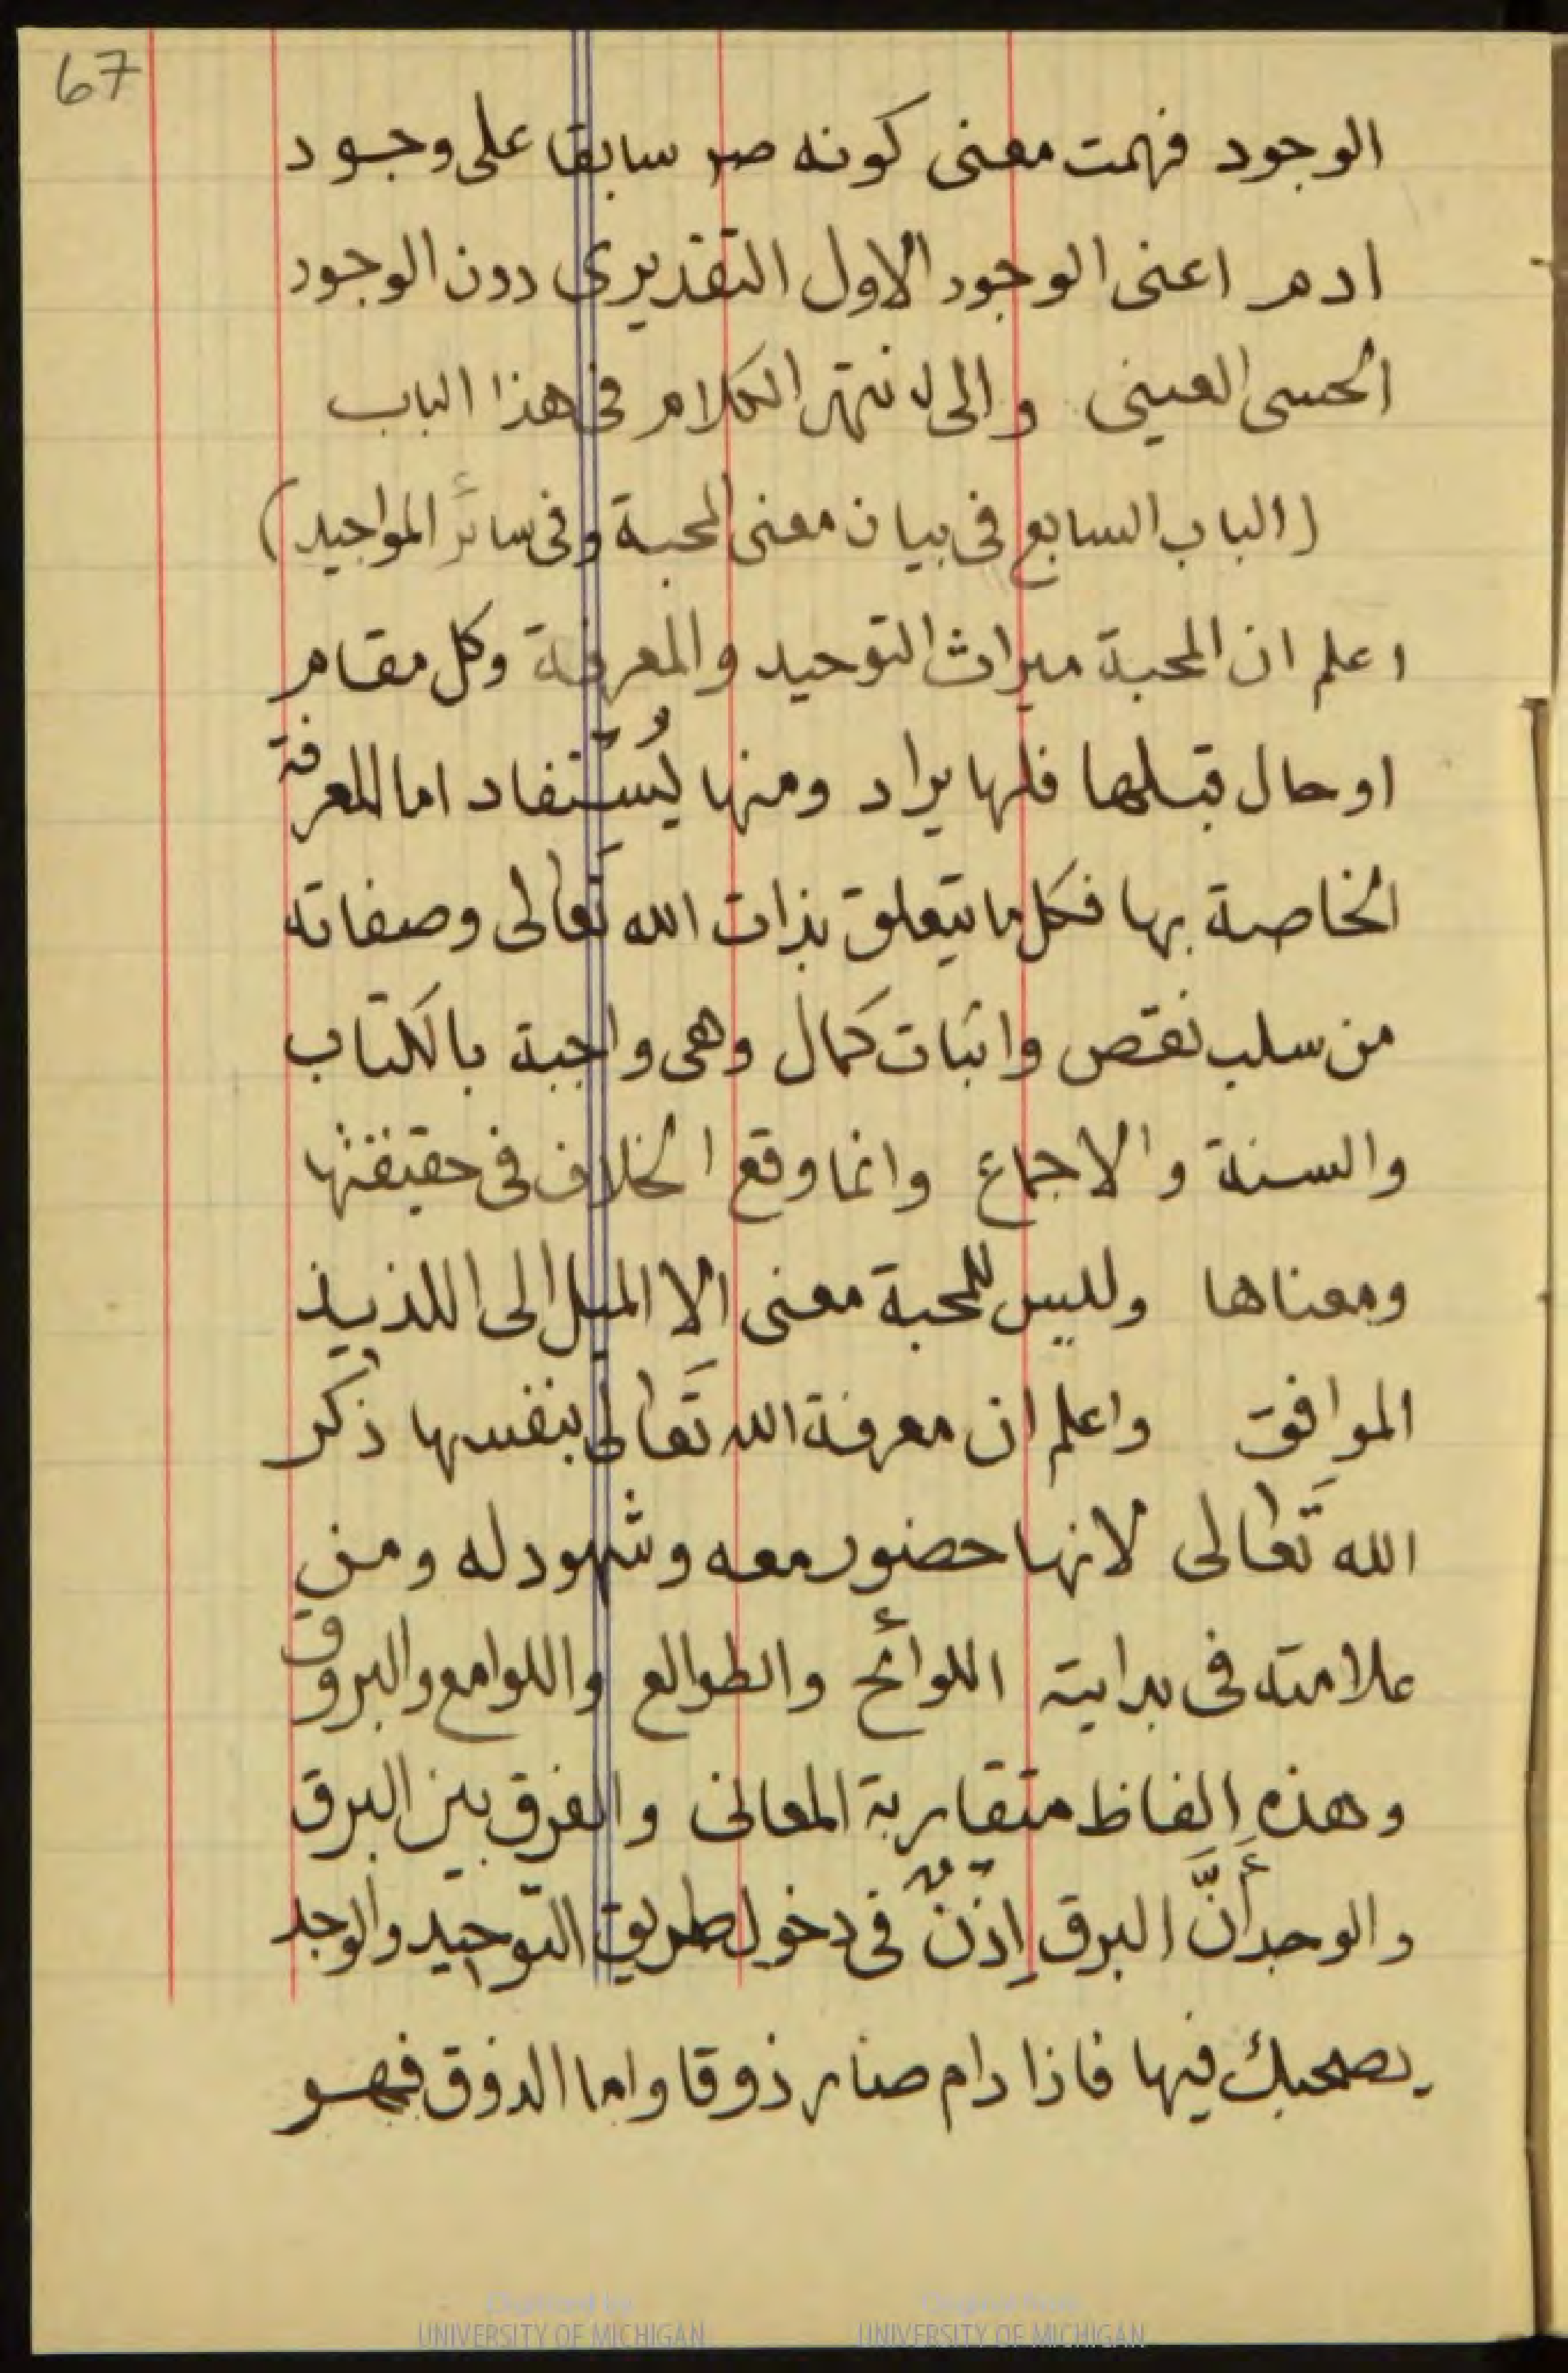 67
الوجود فهمت معنى كونه صر سابقا على وجود
ادم اعنى الوجود الاول التقديرى دون الوجود
الحسى العينى والى لا نتهى الكلام فى هذا الباب
(الباب السابع فى بيان معنى المحبة وفى سائر المواجيد)
اعلم ان المحبة ميراث التوحيد والمعرفة وكل مقام
او حال قبلها فلها يراد ومنها يُستفاد اما المعرفة
الخاصة بها فكل ما يتعلق بذات الله تَعالى وصفاته
من سلب نقص واثبات كمال وهى واجبة بالكتاب
والسنة والاجماع وانما وقع الخلاف فى حقيقتها
ومعناها وليس للمحبة معنى الا الميل الى اللذيذ
الموافق واعلم ان معرفة الله تَعالى بنفسها ذكر
الله تَعالى لانها حضور معه وشهود له ومن
علامته فى بدايته اللوائح والطوالع واللوامع والبروق
وهذه الفاظ متقاربة المعانى والفرق بين البرق
والوجد أَنَّ البرق اِذنٌ فى دخول طريق التوحيد والوجد
يصحبك فيها فاذا دام صار ذوقا واما الذوق فهو
Digitized by
UNIVERSITY OF MICHIGAN
Original from
UNIVERSITY OF MICHIGAN